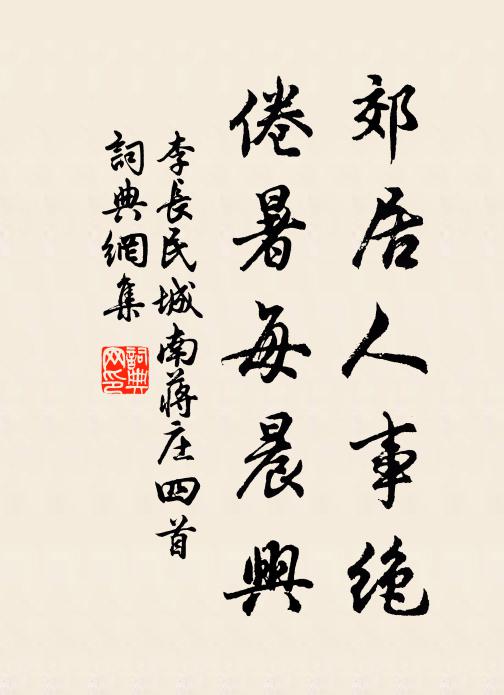 郊居人事絶
倦暑每晨興
李長民城南蔣庄四首
詞典網集
詞典
网印